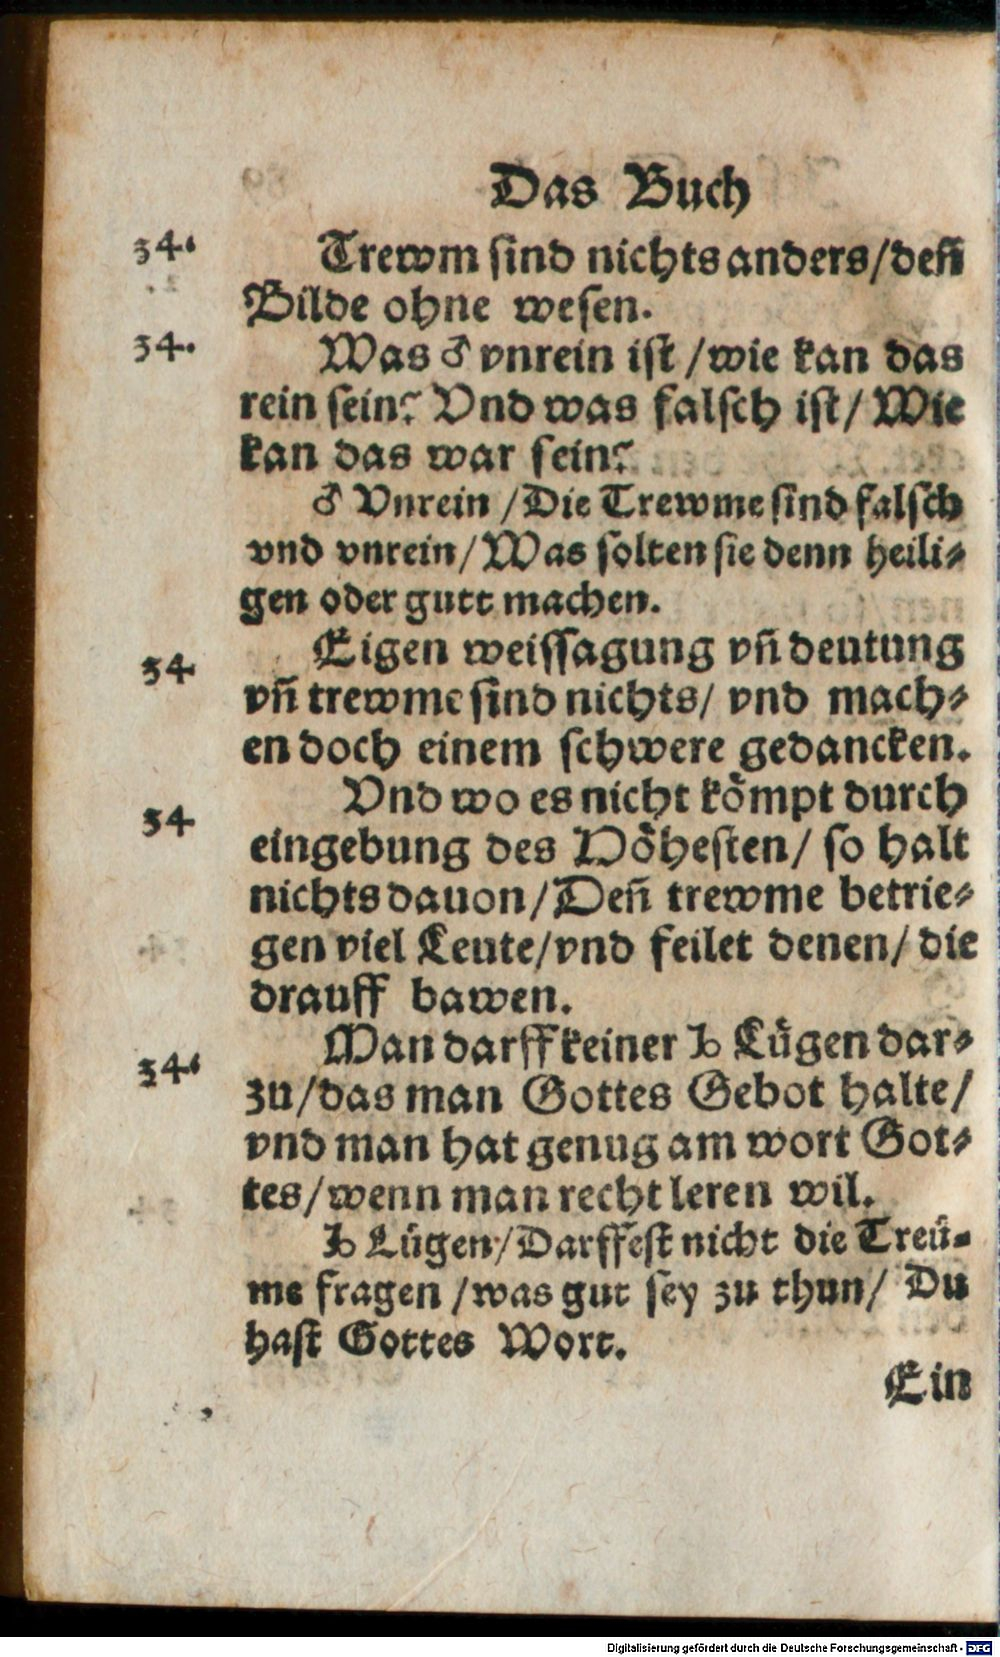 Das Buch
34. Trewm sind nichts anders/ deñ
Bilde ohne wesen.
34. Was ♂ vnrein ist / wie kan das
rein sein? Vnd was falsch ist/ Wie
kan das war sein?
♂ Vnrein / Die Trewme sind falsch
vnd vnrein/ Was solten sie denn heili⸗
gen oder gutt machen.
34 Eigen weissagung vñ deutung
vñ trewme sind nichts/ vnd mach⸗
en doch einem schwere gedancken.
34 Vnd wo es nicht kömpt durch
eingebung des Höhesten/ so halt
nichts dauon/ Deñ trewme betrie⸗
gen viel Leute/ vnd feilet denen/ die
drauff bawen.
34. Man darff keiner ♃ Lügen dar⸗
zu/ das man Gottes Gebot halte/
vnd man hat genug am wort Got⸗
tes/ wenn man recht leren wil.
♃ Lügen/ Darffest nicht die Treü⸗
me fragen / was gut sey zu thun/ Du
hast Gottes Wort.
Ein
Digitalisierung gefördert durch die Deutsche Forschungsgemeinschaft - DFG